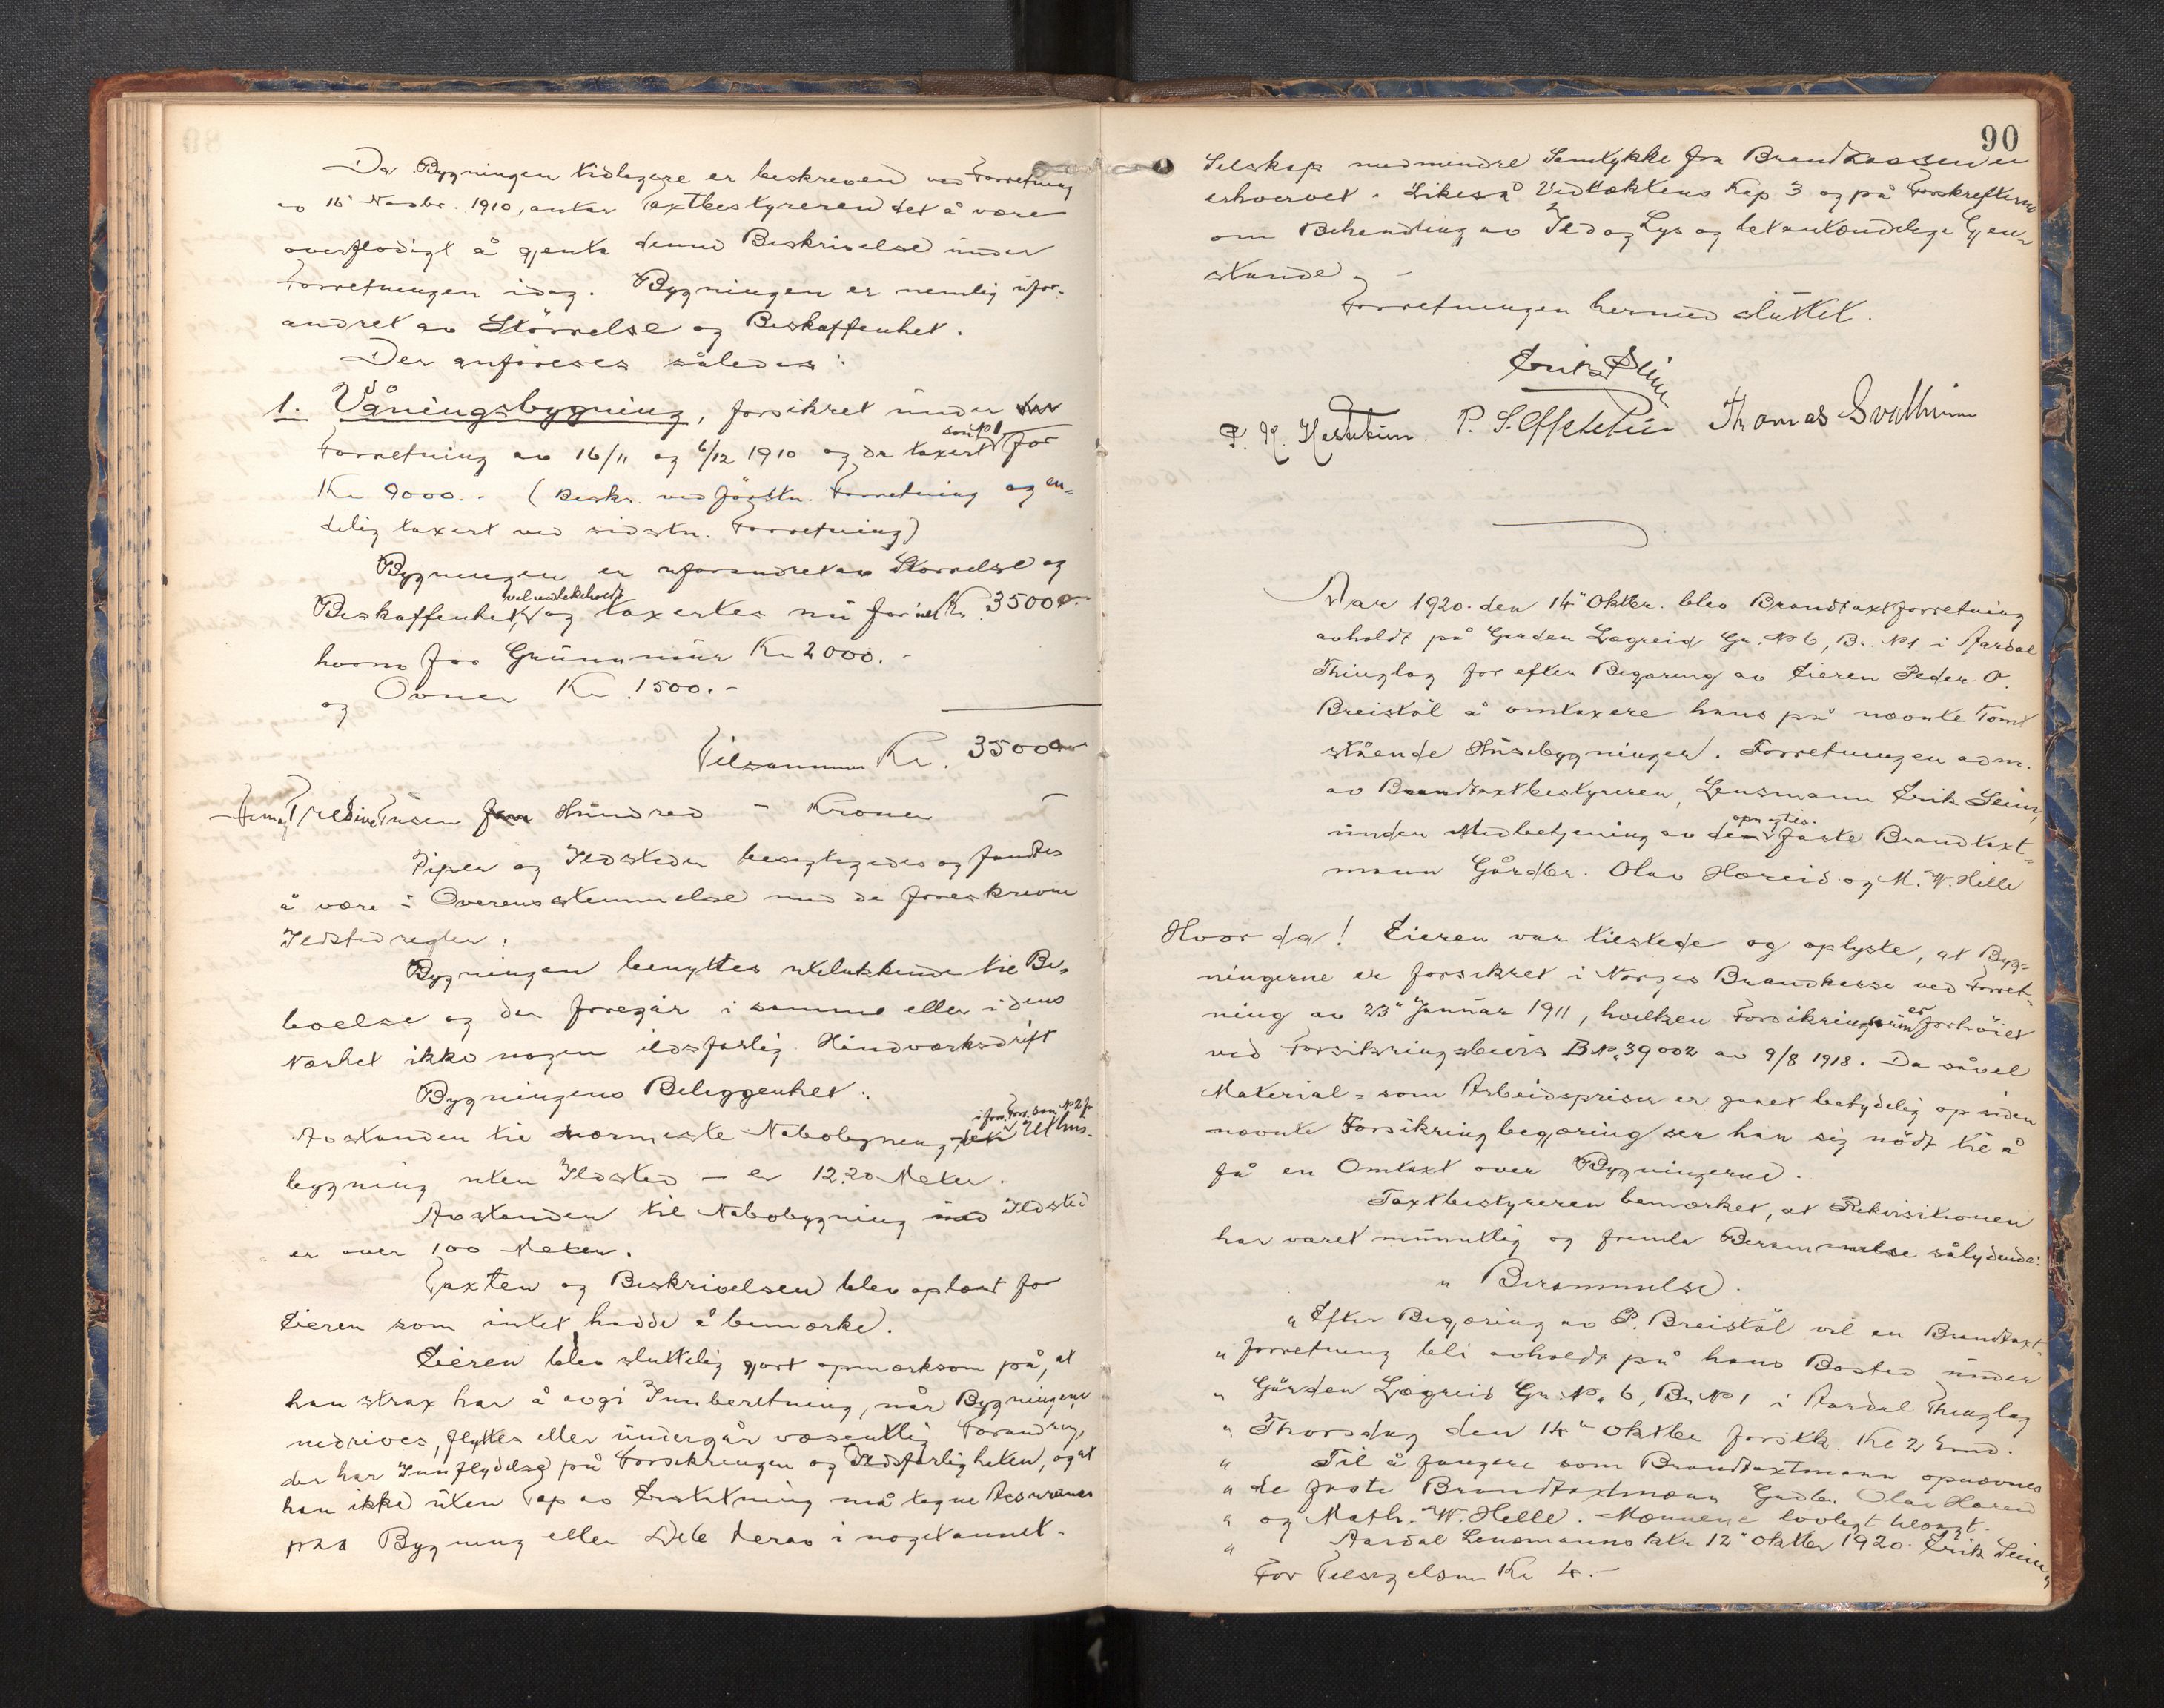 Da Bygningen tidligere er beskreven ved Forretning
av 16 Novbr. 1910, antar Taxtbestyreren det å være
overflødigt å gjenta denne Beskrivelse under
Forretningen idag. Bygningen er nemlig ufor-
andret av Störrelse og Beskaffenhet.
Der anföreses således:
1. Våningsbygning, forsikret under
Forretning av 16/11 og 6/12 1910 og da taxert som No 1 for
Kr 9000.- (Beskr. ved förstn. Forretning og en-
delig taxert ved sidstn. Forretning)
Bygningen er uforandret av Störrelse og
Beskaffenhet, vel vedlikeholdt og taxertes nu for Kr. 35000.-
hvorav for Grunnmur Kr 2000.-
og Ovner Kr. 1500.-
Tilsammen Kr. 35000
Hundred - Kroner
Piper og Ildsteder besigtigedes og fandtes
å være i Overensstemmelse med de foreskrevne
Ildstedregler.
Bygningen benyttes utelukkende til Be-
boelse og der foregår i samme eller i dens
Nærhet ikke nogen ildsfarlig Håndværksdrift
Bygningens Beliggenhet:
Avstanden til nærmeste Nabobygning i Uthus-
bygning uten Ildsted - er 12.20 Meter.
Avstanden til Nabobygning med Ildsted
er over 100 Meter.
Taxten og Beskrivelsen blev oplæst for
Eieren som intet hadde å bemærke.
Eieren blev sluttelig gjort opmærksom på, at
han strax har å avgi Innberetning, når Bygningene
nedrives, flyttes eller undergår væsentlig Forandring,
der har Innflydelse på Forsikringen og Ildsfarligheten, og at
han ikke uten Tap av Erstatning må tegne Assurance
paa Bygning eller Dele derav i noget annet
90
Selskap medmindre Samtykke fra Brandkassen er
erhvervet. Likeså Vedtæktens Kap 3 og på Forskrifterne
om Behandling av Ild og Lys og letantændelige Gjen-
stande.
Forretningen hermed sluttet.
Erik Seim
P. S. Thomas Svalheim
Aar 1920 den 14 Oktbr. blev Brandtaxtforretning
avholdt på Garden Lægreid Gr. No 6, Br. No 1 i Aardal
Thinglag for efter Begæring av Eieren Peder O.
Breistöl å omtaxere hans på nævnte Tomt
stående Husebygninger. Forretningen adm.
av Brandtaxtbestyreren, Lensmann Erik Seim,
under Medbetjening av de opnævnte faste Brandtaxt-
mænn Gårdbr. Olav Hæreid og M. W. Hille
Hvor da! Eieren var tilstede og oplyste, at Byg-
ningerne er forsikret i Norges Brandkasse ved Forret-
ning av 23 Januar 1911, hvilken Forsikringssum er forhöiet
ved Forsikringsbevis B No. 39002 av 9/8 1918. Da såvel
Material- som Arbeidspriser er gaaet betydelig op siden
nævnte Forsikring begjæring ser han sig nödt til å
få en Omtaxt over Bygningerne.
Taxtbestyreren bemærket, at Rekvisitionen
har været munntlig og fremla Berammelse sålydende:
" Berammelse.
" Efter Begæring av P. Breistöl vil en Brandtaxt-
" forretning bli avholdt på hans Bosted under
" Gården Lægreid Gr. No. 6, Br. No 1 i Aardal Thinglag
" Thorsdag den 14 Oktber førstk. Kl 2 Emd.
" Til å fungere som Brandtaxtmænn opnævnes
" de faste Brandtaxtmænn Gardbr. Olav Hæreid
" og Math. W. Helle. Mænnene lovligt tilsagt.
" Aardal Lensmannsktr 12 Oktber 1920. Erik Seim
For Tilsigelsen Kr 4.-